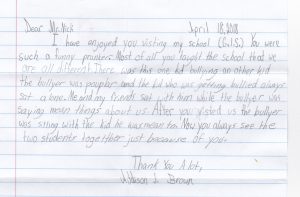 Dear Mr. Nick April 18, 2011
I have enjoyed you visting my school (G.I.S.). You were
such a funny prankers. Most of all you taught the school that we
are all different. There was this one kid bullying an other kid
the bullyer was poupler and the kid who was getting bullied always
sat alone. Me and my friends sat with him while the bullyer was
saying mean things about us. After you visted us the bullyer
was siting with the kid he was mean to. Now you always see the
two students together just because of you.
Thank You A lot,
Addison J. Brown